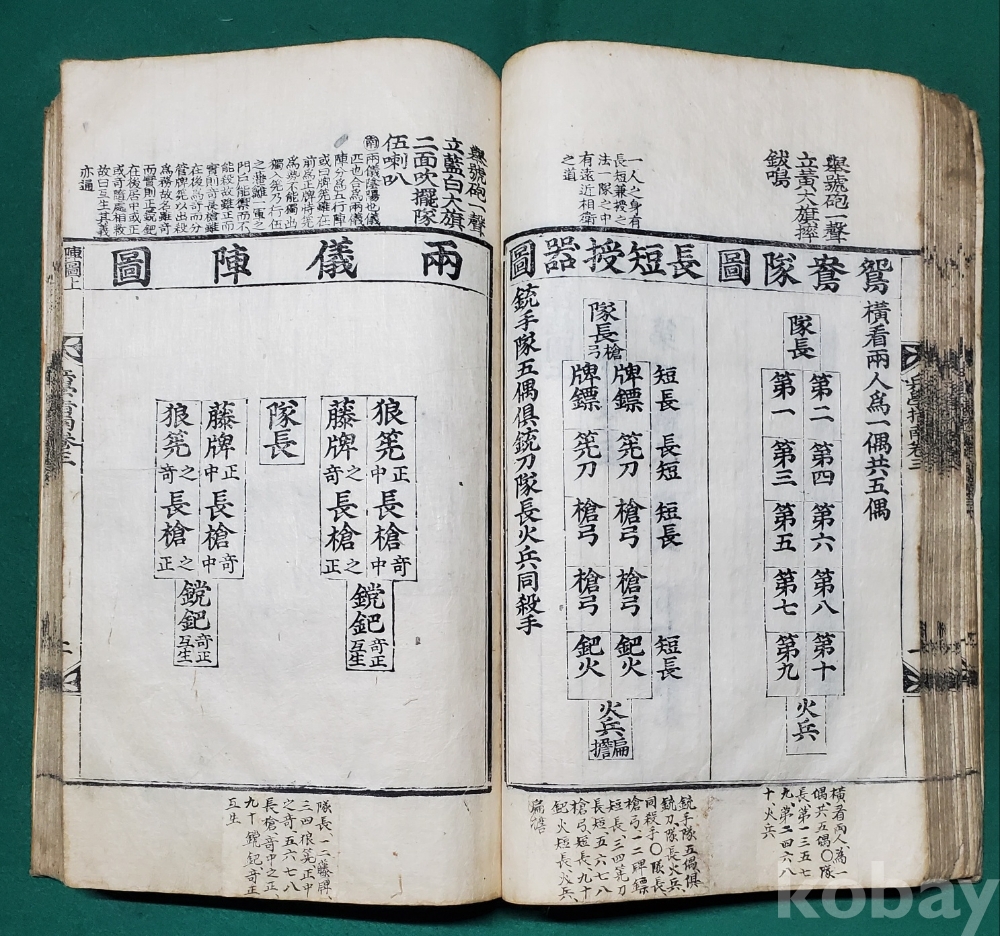 擧號砲一聲
立黃大旗摔
鈸鳴
鴛鴦隊圖
橫看兩人爲一偶共五偶
隊長
第二 第一
第四 第三
第六 第五
第八 第七
第十 第九
火兵
橫看兩人為一
偶共五偶〇隊
長第一三五七
九第二四六八
十火兵
一人之身有
長短兼授之
法一隊之中
有遠近相衛
之道
長短授器圖
隊長 槍弓
短長 牌鏢 牌鏢
長短 筅刀 筅刀
短長 槍弓 槍弓
槍弓 槍弓
短長 鈀火 鈀火
火兵 扁擔
銃手隊五偶俱銃刀隊長火兵同殺手
銃手隊五偶俱
銃刀隊長火兵
同殺手〇隊長
槍弓一二牌鏢
短長三四筅刀
長短五六七八
槍弓短長九十
鈀火短長火兵
扁擔
擧號砲一聲
立藍白大旗
二面吹擺隊
伍喇叭
兩儀陣圖
狼筅 正中 長槍 奇中
藤牌 之奇 長槍 之正
鎲鈀 奇正互生
隊長
藤牌 正中 長槍 奇中
狼筅 之奇 長槍 之正
鎲鈀 奇正互生
隊長一二藤牌
三四狼筅正中
之奇五六七八
長槍奇中之正
九十鎲鈀奇正
互生
陣圖上
kobay